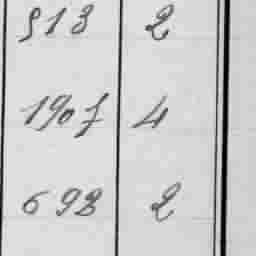 913 2
1907 4
692 2